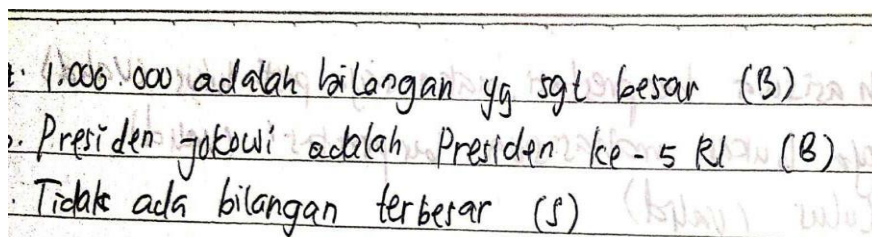 1.000.000 adalah bilangan yg sgt besar (B)
Presiden Jokowi adalah Presiden ke-5 RI (B)
Tidak ada bilangan terbesar (S)